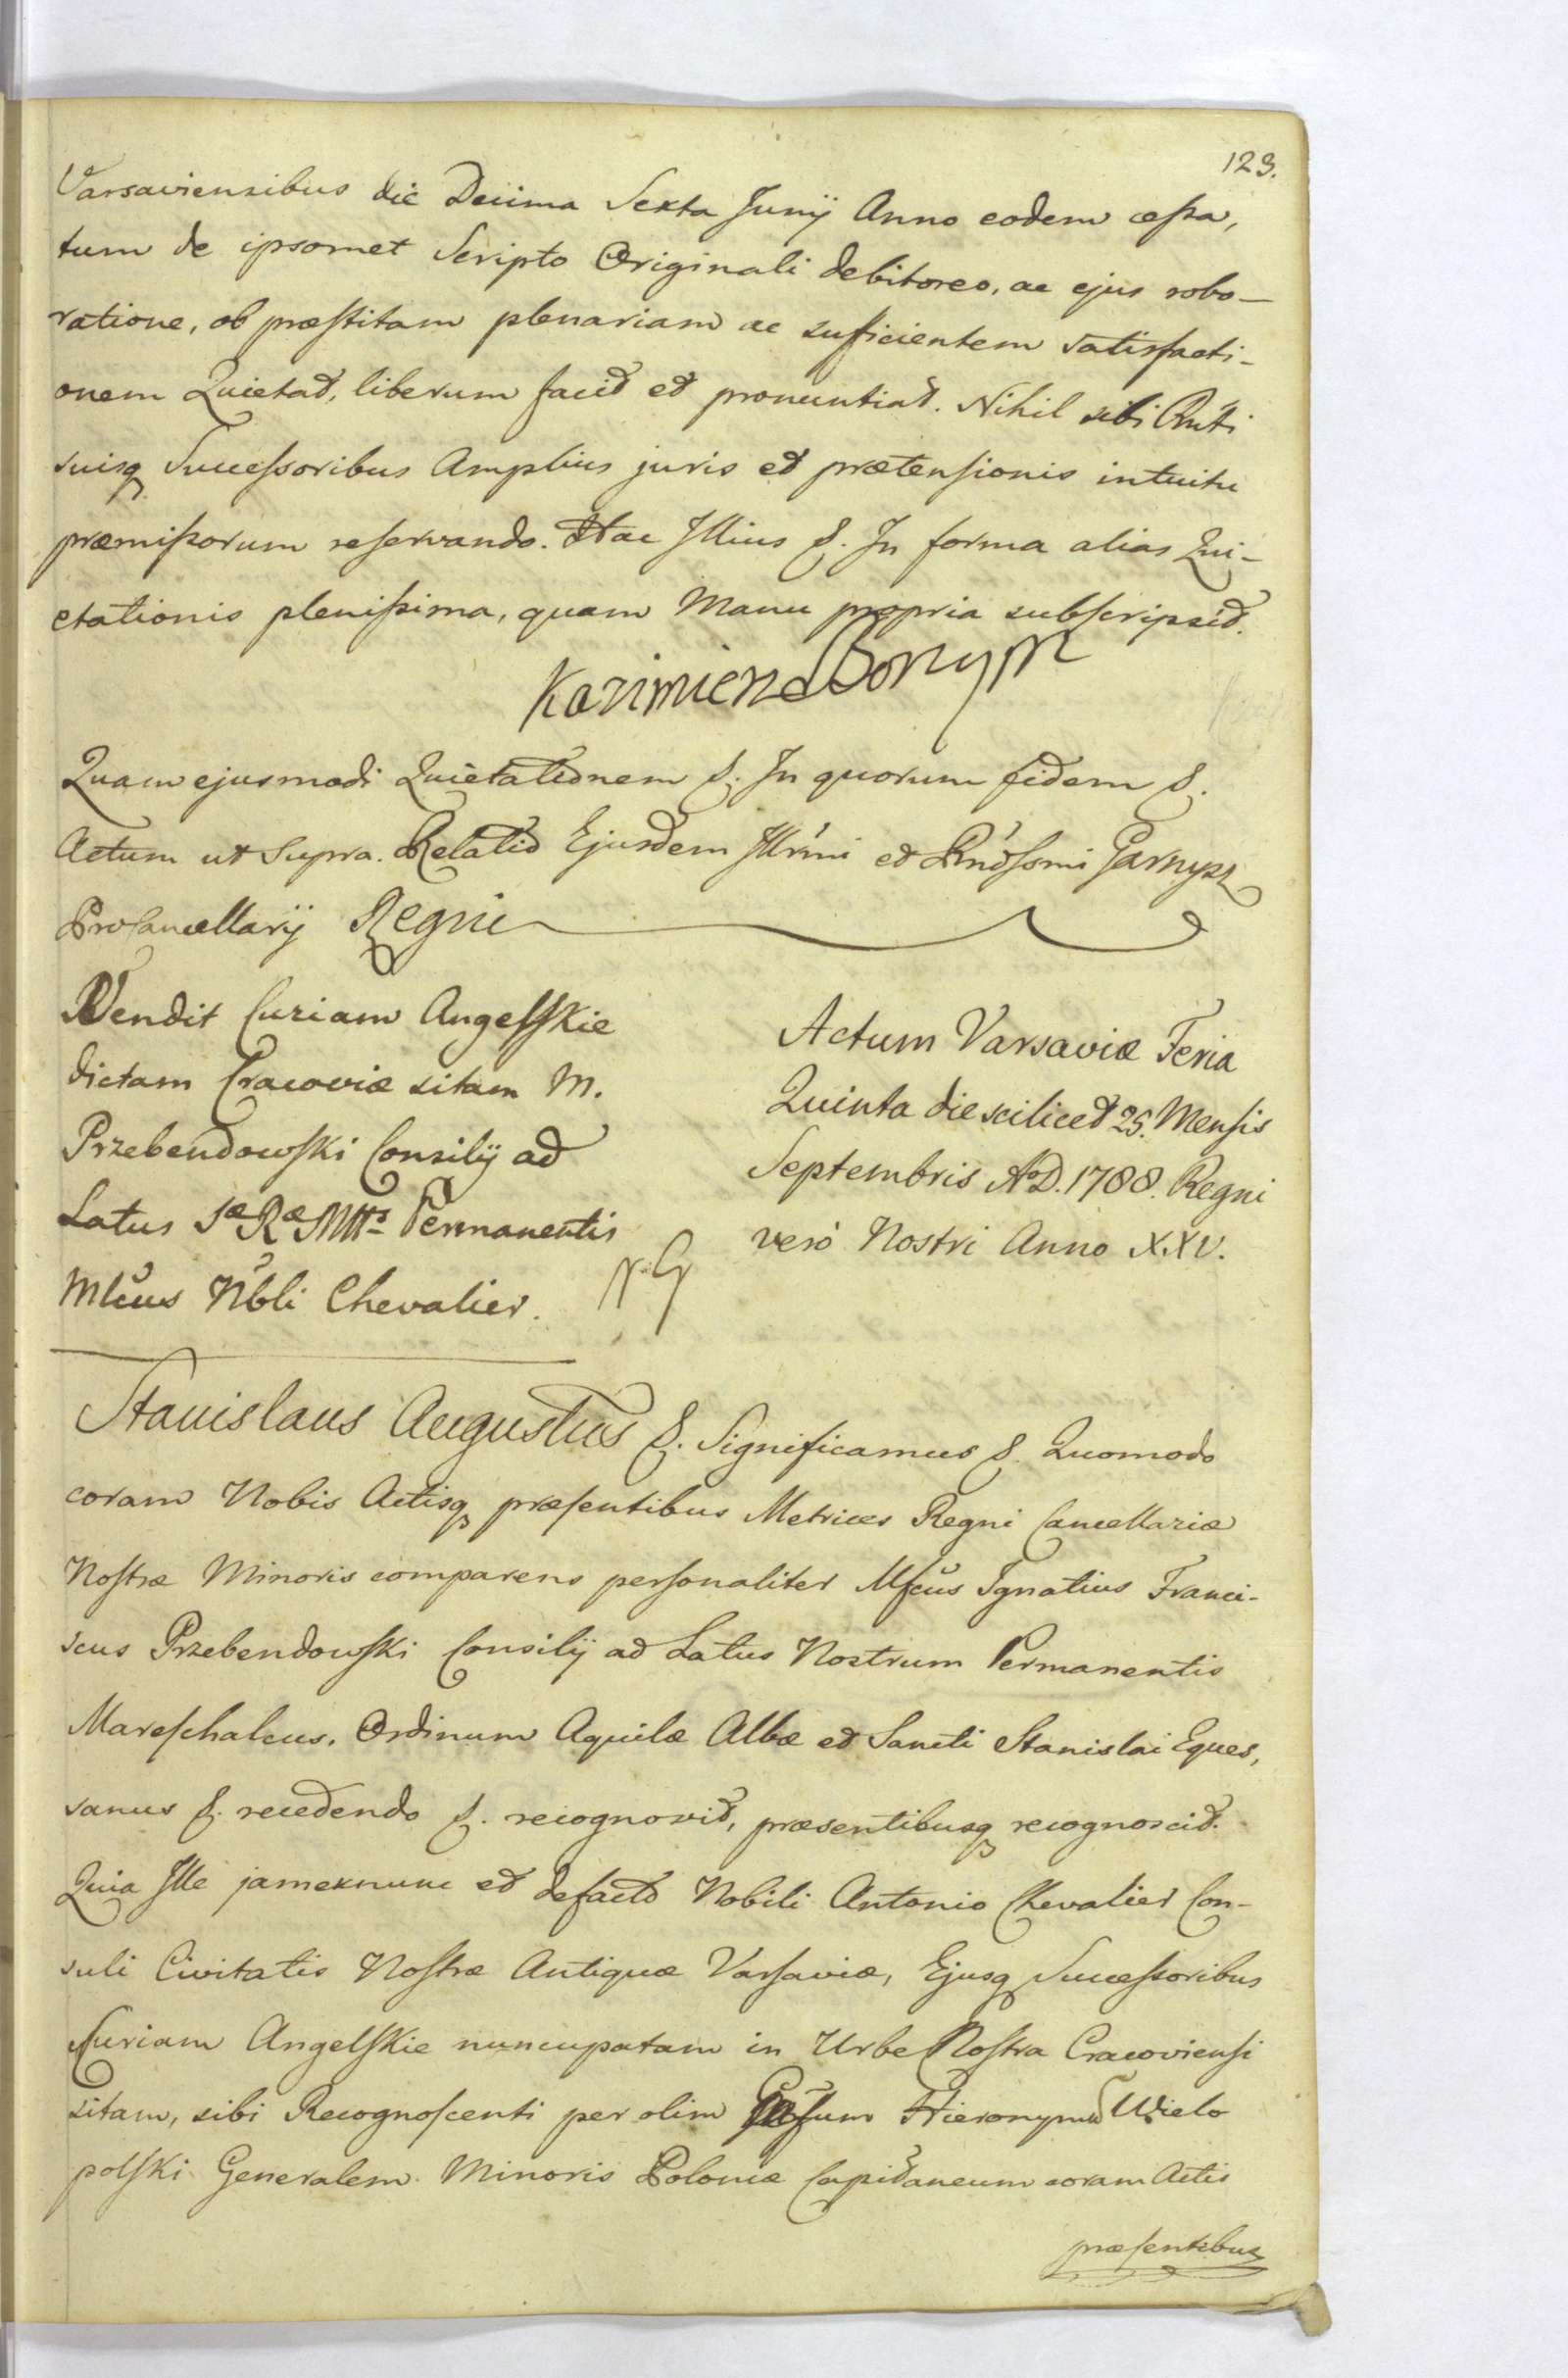 123.
Varsaviensibus die Decima Sexta Junij Anno eodem cessa,
tum de ipsomet Scripto Originali debitoreo, ac ejus robo-
ratione, ob præstitam plenariam ac sufficientem satisfacti-
onem Quietat, liberum facit et pronuntiat. Nihil sibi
suisq Successoribus Amplius juris et prætensionis intuitu
præmissorum reservando. Hac Illius &. In forma alias Qui-
etationis plenissima, quam Manu propria subscripsit.
Kazimierz
Quam ejusmodi Quietationem &. In quorum fidem &.
Actum ut supra. Relatio Ejusdem Illrmi et Rndssmi Garnysz
ProCancellarij Regni
Vendit Curiam Angelskie
dictam Cracoviæ sitam M.
Przebendowski Consilij ad
Latus Sæ Ræ Mttis Permanentis
Mlcus Nbli Chevalier.
NG
Actum Varsaviæ Feria
Quinta die scilicet 25. Mensis
Septembris AoD. 1788. Regni
veró Nostri Anno XXV.
Stanislaus Augustus &. Significamus &. Quomodo
coram Nobis Actisq præsentibus Metrices Regni Cancellariæ
Nostræ Minoris comparens personaliter Mfcus Ignatius Franci-
scus Przebendowski Consilij ad Latus Nostrum Permanentis
Mareschalcus, Ordinum Aquilæ Albæ et Sancti Stanislai Eques,
sanus &. recedendo &. recognovit, præsentibusq recognoscit.
Quia Ille jamexnunc et defacto Nobili Antonio Chevalier Con-
suli Civitatis Nostræ Antiquæ Varsaviæ, Ejusq Successoribus
Curiam Angelskie nuncupatam in Urbe Nostra Cracoviensi
sitam, sibi Recognoscenti per olim Hieronymum Wielo
polski Generalem Minoris Poloniæ Capitaneum coram Actis
præsentibus